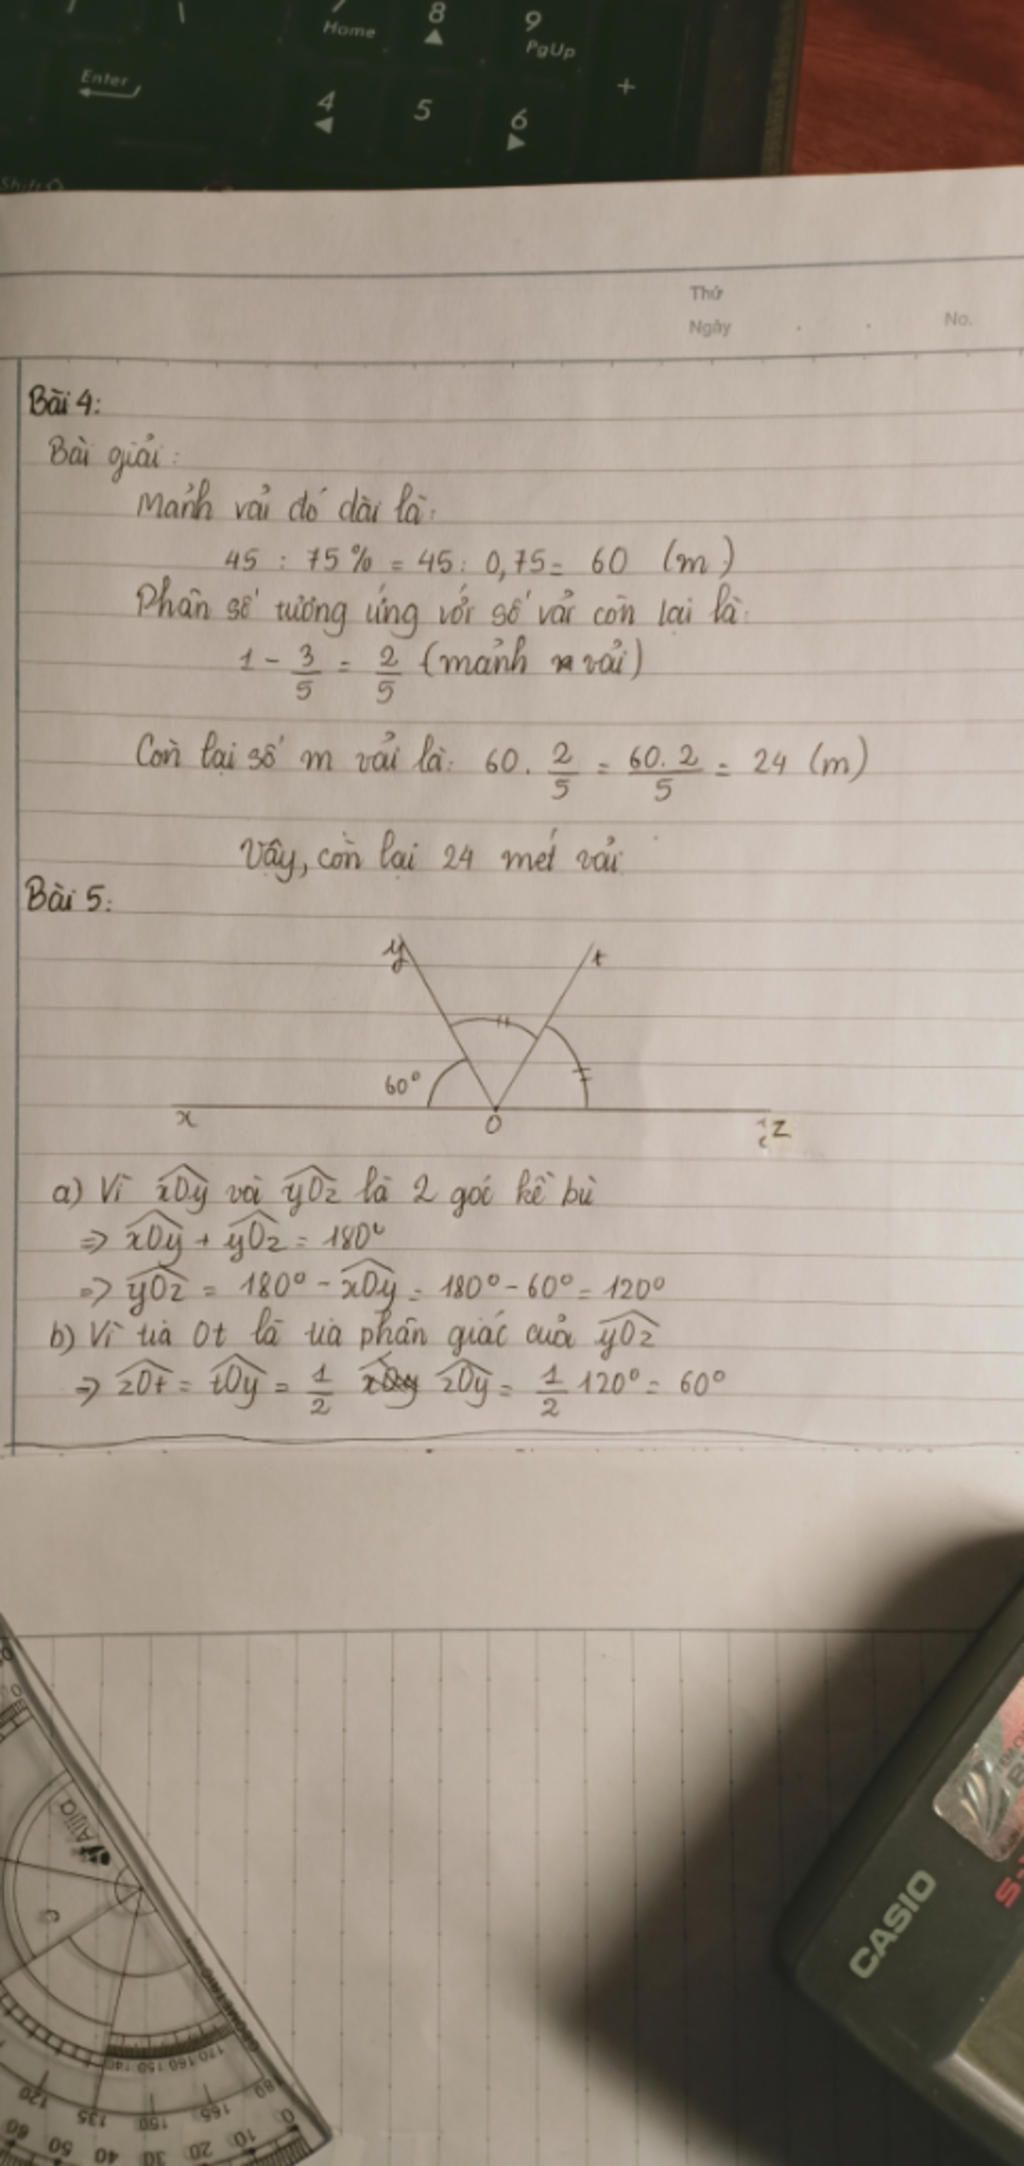 8
Home
9
PgUp
Enter
4
5
6
+
Shift
Thứ
Ngày
No.
Bài 4:
Bài giải:
Mảnh vải đó dài là:
45 : 75% = 45 : 0,75 = 60 (m)
Phân số tương ứng với số vải còn lại là:
1 - 3/5 = 2/5 (mảnh vải)
Còn lại số m vải là: 60 . 2/5 = 60.2/5 = 24 (m)
Vậy, còn lại 24 mét vải
Bài 5:
y
t
60°
x
O
z
a) Vì xOy và yOz là 2 góc kề bù
=> xOy + yOz = 180°
=> yOz = 180° - xOy = 180° - 60° = 120°
b) Vì tia Ot là tia phân giác của yOz
=> zOt = tOy = 1/2 zOy = 1/2 120° = 60°
Aijia
CASIO
120
135
140 150 160 170
150
165
180
0
10
20
30
40
50
60